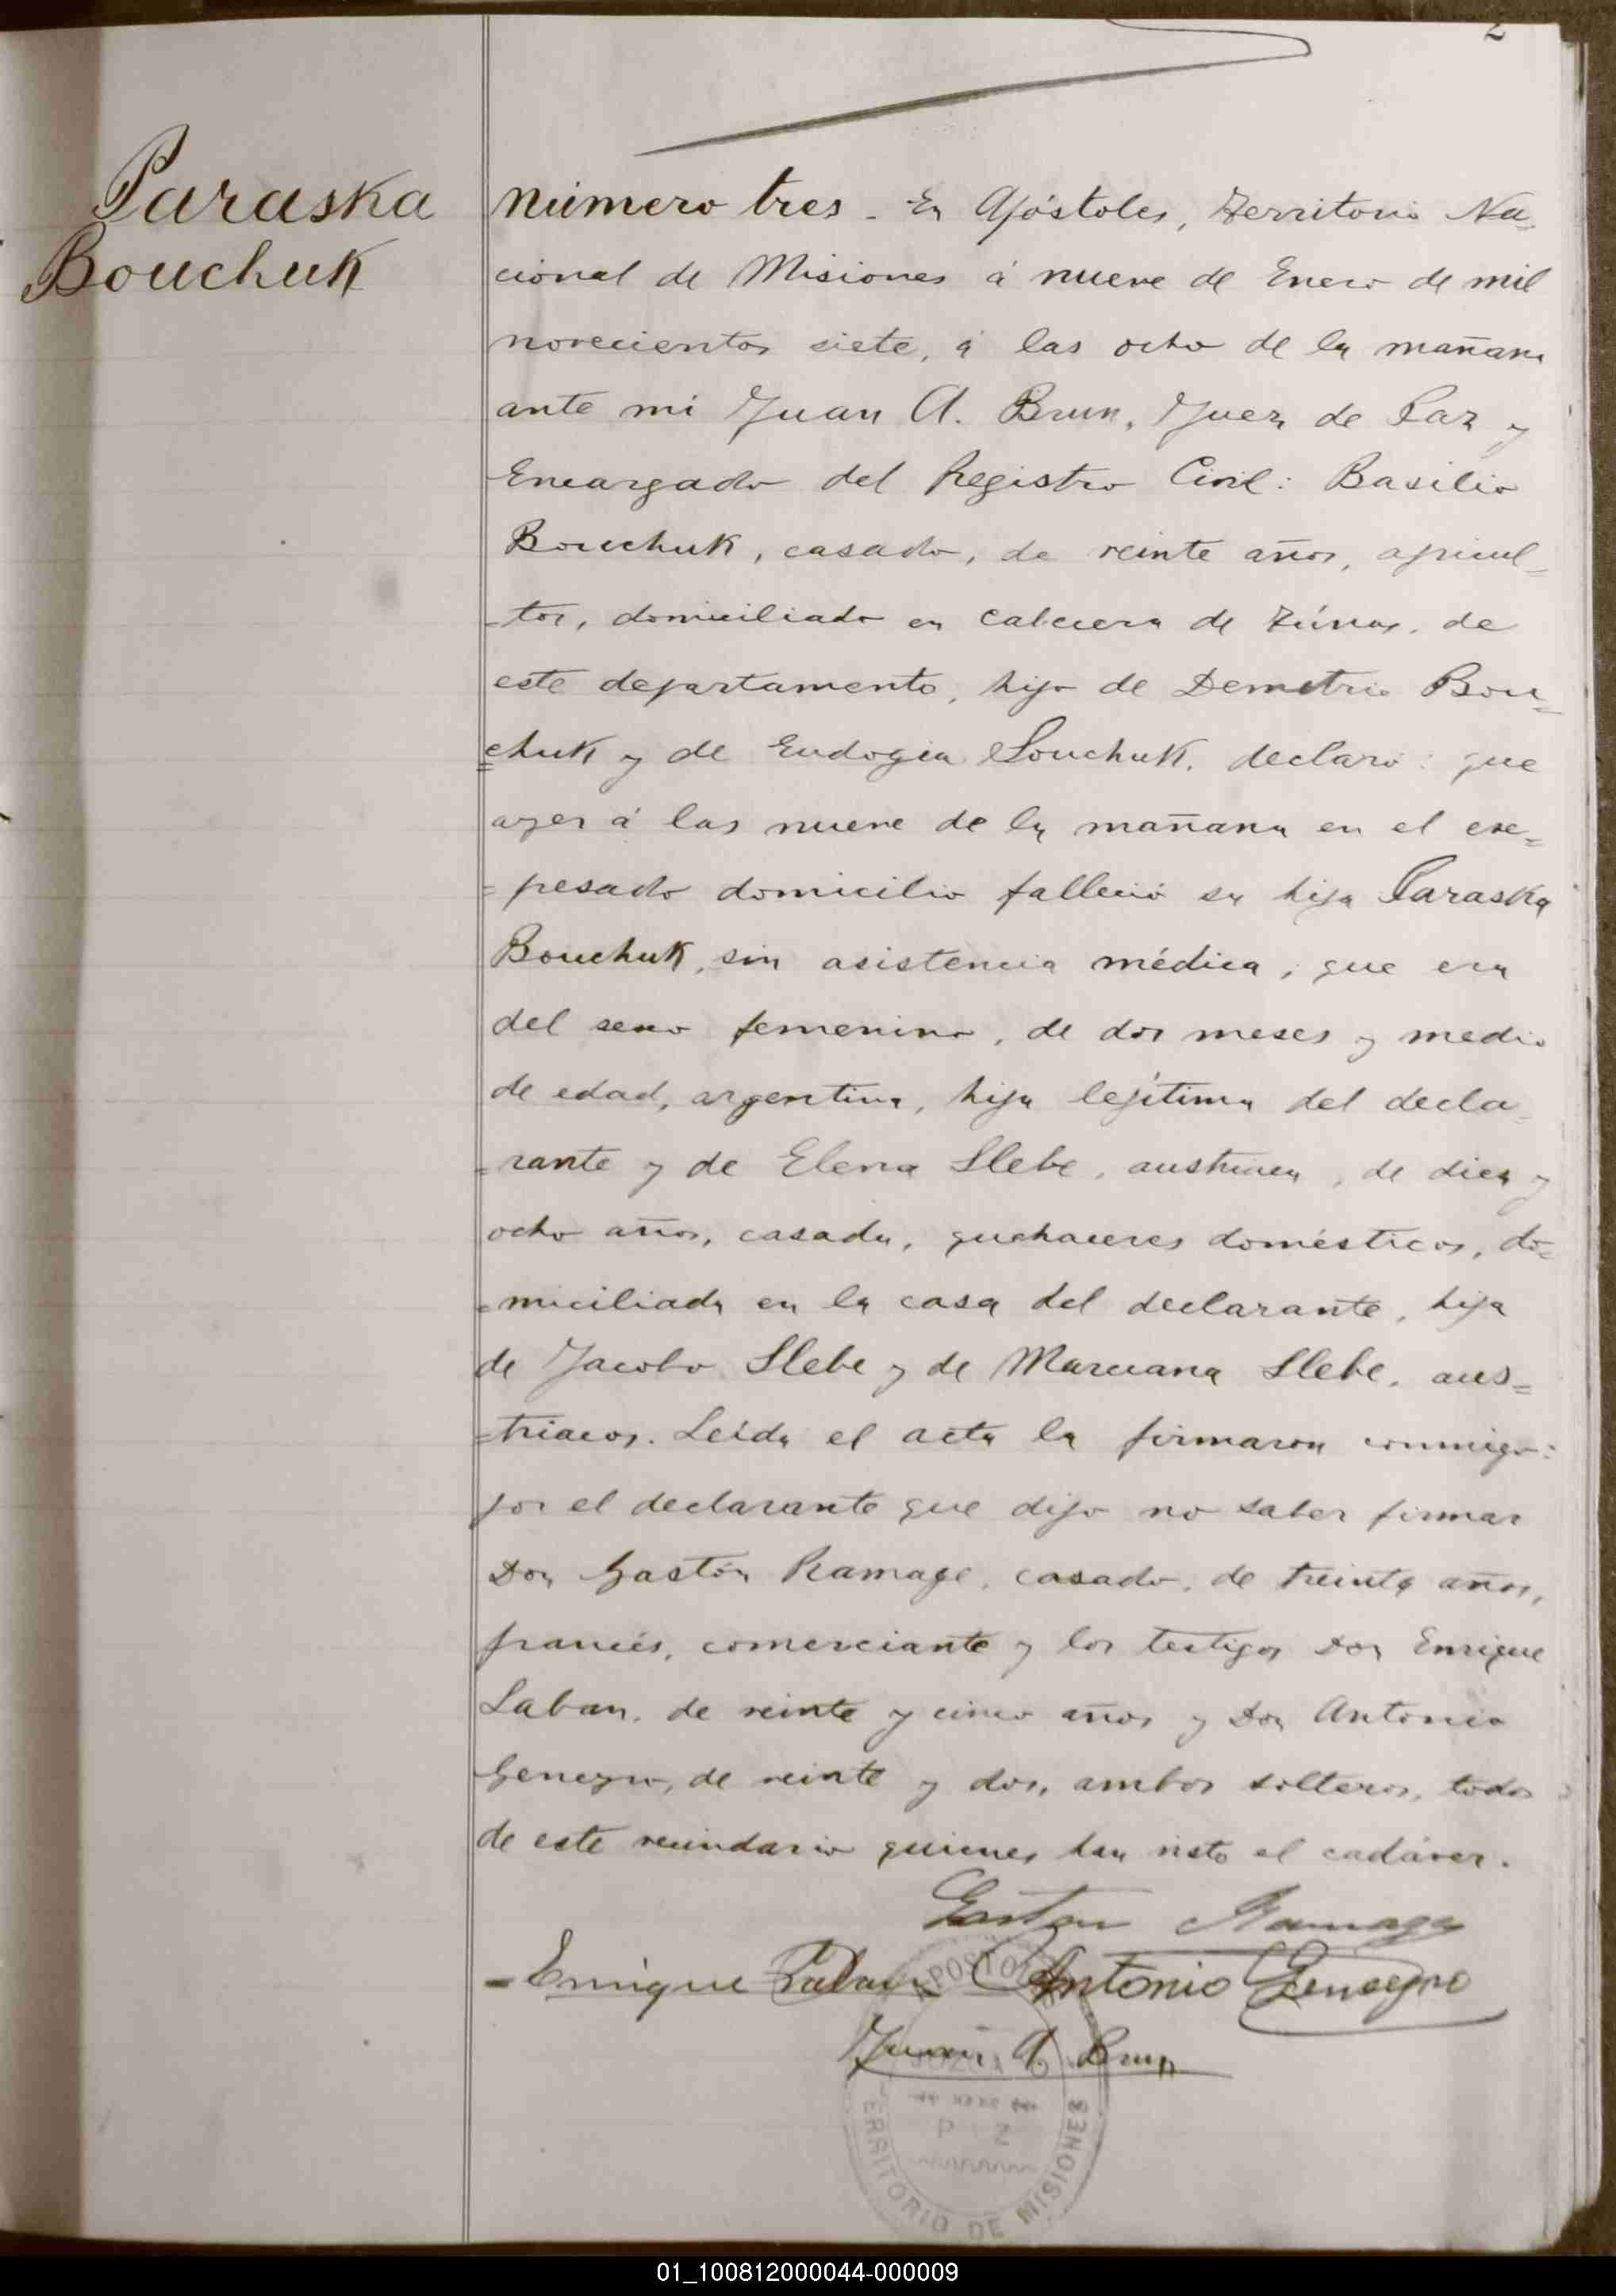 2
Paraska
Bouchuk
Número tres - En Apóstoles, Territorio Na-
cional de Misiones á nueve de Enero de mil
novecientos siete, á las ocho de la mañana
ante mi Juan A. Brun, Juez de Paz y
Encargado del Registro Civil: Basilio
Bouchuk, casado, de veinte años, agricul=
-tor, domiciliado en cabecera de Túnas, de
este departamento, hijo de Demetrio Bou=
=chuk y de Eudogia Souchuk, declaró: que
ayer á las nueve de la mañana en el exe=
=pesado domicilio falleció su hija Paraska
Bouchuk, sin asistencia médica; que era
del sexo femenino, de dos meses y medio
de edad, argentina, hija legítima del decla-
=rante y de Elena Slebe, austriaca, de diez y
ocho años, casada, quehaceres domésticos, do=
=miciliada en la casa del declarante, hija
de Jacobo Slebe y de Maruana Slebe, aus=
=triacos. Leída el acta la firmaron conmigo:
por el declarante que dijo no saber firmar
Don Gastón Ramage, casado, de treinta años,
francés, comerciante y los testigos Don Enrique
Laban, de veinte y cinco años y Don Antonio
Genegro, de veinte y dos, ambos solteros, todos
de este vecindario quienes han visto el cadáver.
Gaston Ramage
=Enrique Laban Antonio Genegro
Juan A. Brun
APOSTOLES
P Z
TERRITORIO DE MISIONES
01_100812000044-000009